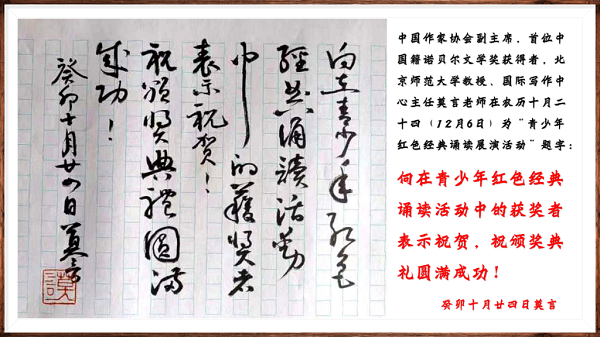 向在青少年红色
經典诵讀活動
中的獲奖者
表示祝贺！
祝颁奖典禮圓满
成功！
癸卯十月廿四日莫言
中国作家协会副主席，首位中
国籍诺贝尔文学奖获得者，北
京师范大学教授、国际写作中
心主任莫言老师在农历十月二
十四（12月6日）为“青少年
红色经典诵读展演活动”题字：
向在青少年红色经典
诵读活动中的获奖者
表示祝贺，祝颁奖典
礼圆满成功！
癸卯十月廿四日莫言